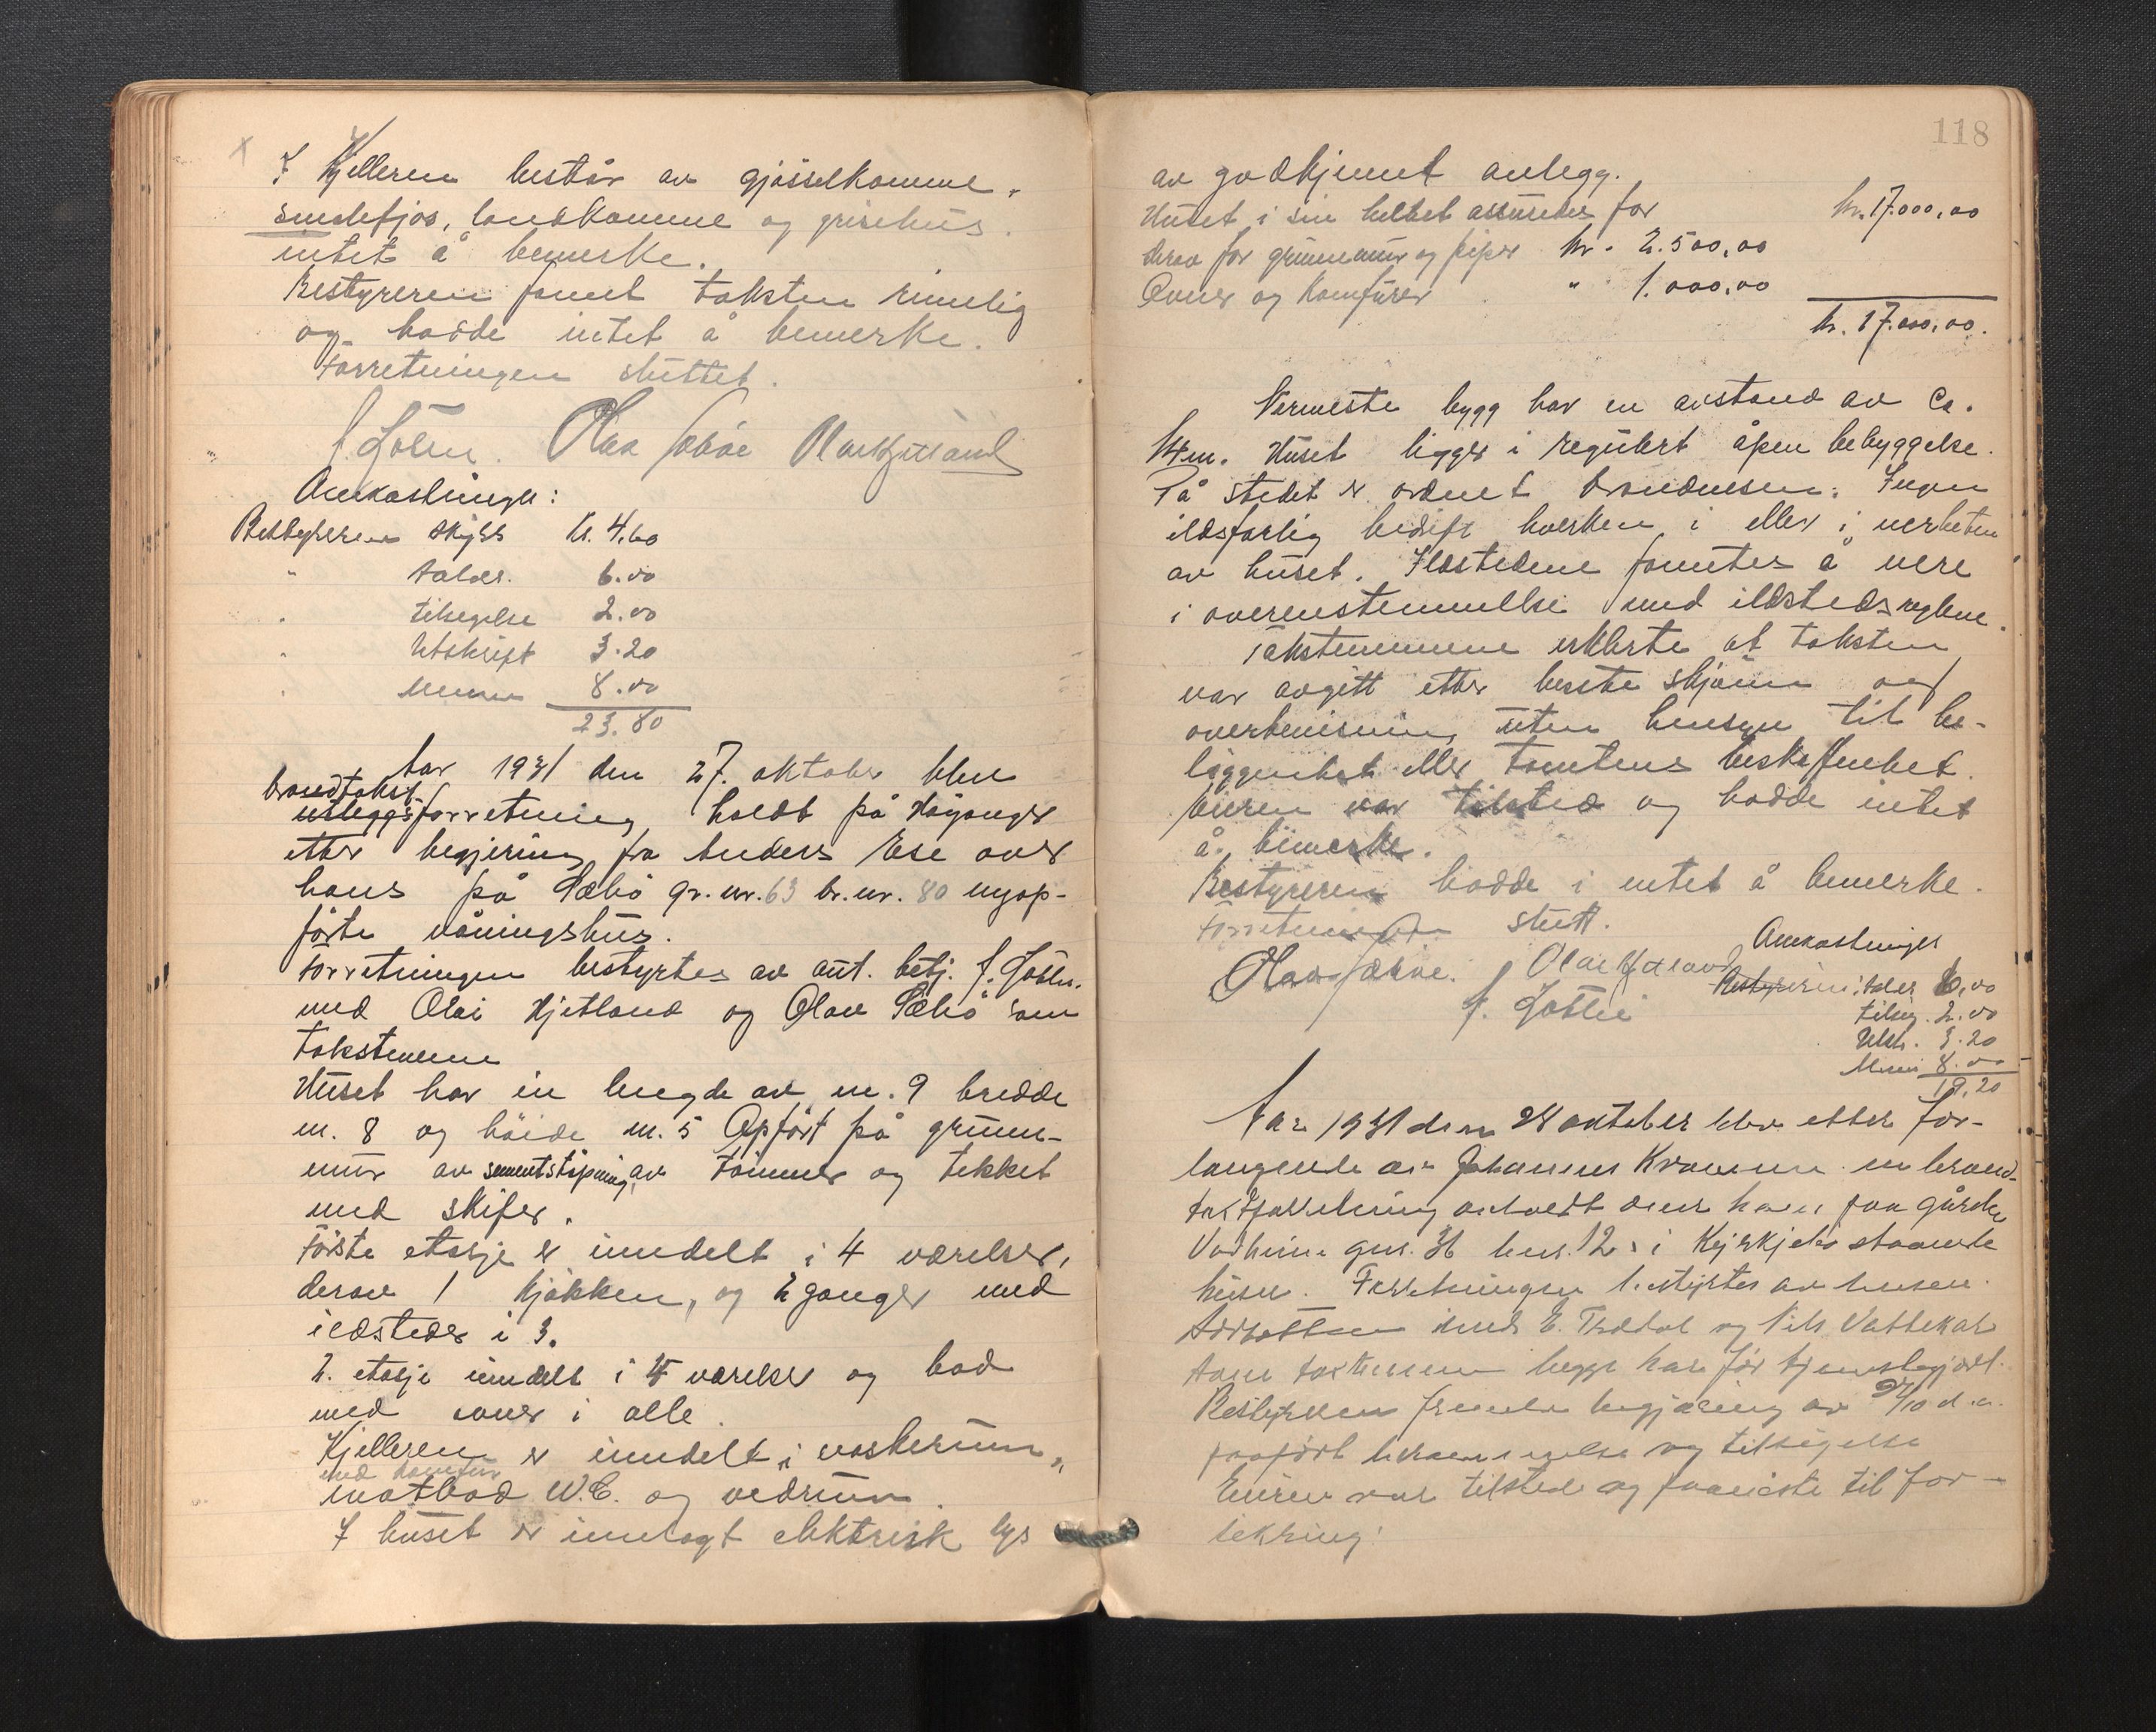 I Kjelleren består av gjøsselkomme,
smalefjos, landkomme og grisehus.
intet å bemerke.
Bestyreren fannt taksten rimelig
og hadde intet å bemerke.
Forretningen sluttet.
Olav Sæbøe Olai Hjetland
Omkostninger:
Bestyreren skyss Kr. 4.60
" 6.00
" tilsigelse 2.00
" Utskrift 3.20
" Menn 8.00
23.80
Aar 1931 den 27. oktober blev
brandtakst
utleggsforretning holdt på Høyanger
etter begjæring fra Anders Ese over
hans på Sæbø gr. nr. 63 br. nr. 80 nyop-
førte våningshus.
Forretningen bestyrtes av aut. betj.
med Olai Hjetland og Olav Sæbø som
takstmenn
Huset har en lengde av m. 9 bredde
m. 8 og høide m. 5 Opført på grunn-
mur av sementstøpning, av tømmer og tekket
med skifer.
Første etasje er inndelt i 4 værelser,
derav 1 kjøkken, og 2 ganger med
ildsteder i 3.
2. etasje inndelt i 4 værelser og bad
med ovner i alle.
Kjelleren er inndelt i vaskerum,
med komfur
matbod W.C. og vedrum.
I huset er innlagt elektrisk lys
118
av godkjennt anlegg.
Huset i sin helhet assureres for kr. 17.000,00
derav for grunnmur og piper kr. 2.500,00
Ovner og Komfurer " 1.000,00
kr. 17.000,00.
Nærmeste bygg har en avstand av ca.
14 m. Huset ligger i regulert åpen bebyggelse.
På stedet er ordnet brandvesen. Ingen
ildsfarlig bedrift hverken i eller i nerheten
av huset. Ildstedene fanntes å vere
i overenstemmelse med ildstedsreglene.
Takstmennene erklerte at taksten
var avgitt etter beste skjønn og
overbevisning uten hensyn til be-
liggenhet eller tomtens beskaffenhet.
Eieren var tilsted og hadde intet
å bemerke.
Bestyreren hadde i intet å bemerke.
Forretningen slutt.
Omkostninger
Olav Sæbøe. Olai Hjetland
Bestyreren: 6,00
tilsig. 2.00
Utskr. 3.20
Menn 8.00
19,20
Aar 1931 den 28 oktober blev etter for-
langende av Johannes Kvamme en brand-
takstforretning avholdt over hans paa gården
Vadheim gnr. bnr. 12 i Kyrkjebø staaende
huser. Forretningen bestyrtes av lensm.
med E. Tredal og Nils Vattekar
som takstmenn begge har før tjenstegjort.
Bestyreren fremla begjæring av 27/10 d.a.
paaført berammelse og tilsigelse
Eieren var tilstede og paaviste til for-
sikring: